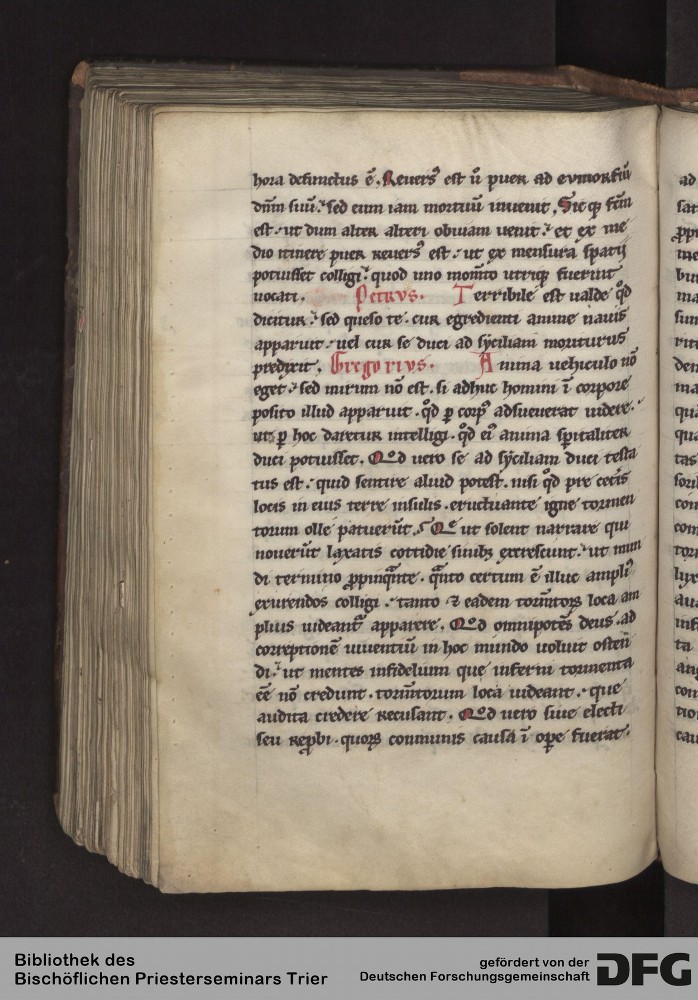 hora defunctus ē. Reuersꝰ est ū puer ad eumorfiū
dn̄m suū. sed eum iam mortuū inuenit. Sicqꝫ fc̄m
est. ut dum alter alteri obuiam uenit. et ex me
dio itinere puer reuersꝰ est. ut ex mensura spatij
potuisset colligi. quod uno mom̄to utriqꝫ fuerint
uocati. Petrvs. Terribile est ualde qͦd
dicitur. sed queso te. cur egredienti anime nauis
apparuit. uel cur se duci ad syciliam moriturus
predixit. Gregorivs. Anima uehiculo nō
eget. sed mirum nō est. si adhuc homini ī corpore
posito illud apparuit. qͦd ꝑ corpꝰ adsueuerat uidere.
ut ꝑ hoc daretur intelligi. qͦd eiꝰ anima sp̄ritaliter
duci potuisset. Qod uero se ad syciliam duci testa
tus est. quid sentire aliud potest. nisi qͦd pre cet̄is
locis in eius terre insulis. eructuante igne tormen
torum olle patuerūt. Qe ut solent narrare qui
nouerūt laxatis cottidie sinibꝫ excrescunt. ut mun
di termino ꝓpinqᵃnte. qᵃnto certum ē illuc ampliꝰ
exurendos colligi. tanto ⁊ eadem torm̄toꝝ loca am
plius uideant᷑ apparere. Qod omnipotēs deus. ad
correptionē uiuentiū in hoc mundo uoluit osten
di. ut mentes infidelium que inferni tormenta
eē nō credunt. torm̄torum loca uideant. que
audita credere recusant. Qod uero siue electi
seu reꝓbi. quoꝝ communis causa ī oꝑe fuerat.
ad
sat
me
ma
sum
den
ma
tas
con
con
ta
con
cau
Bibliothek des
Bischöflichen Priesterseminars Trier
gefördert von der
Deutschen Forschungsgemeinschaft
DFG